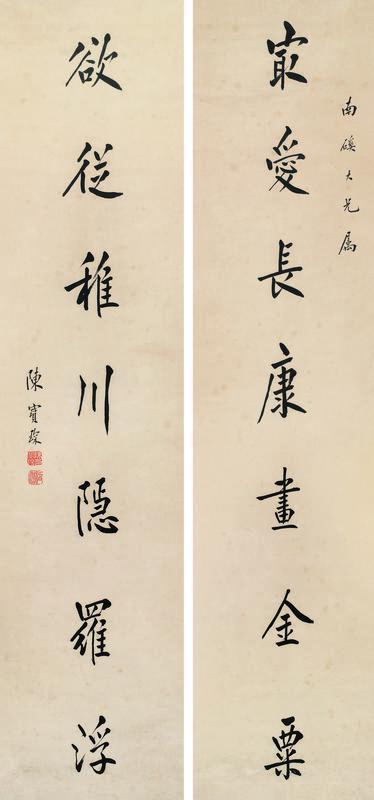 南磎大兄属
㝡愛長康畫金粟
欲從稚川隱羅浮
陳寶琛